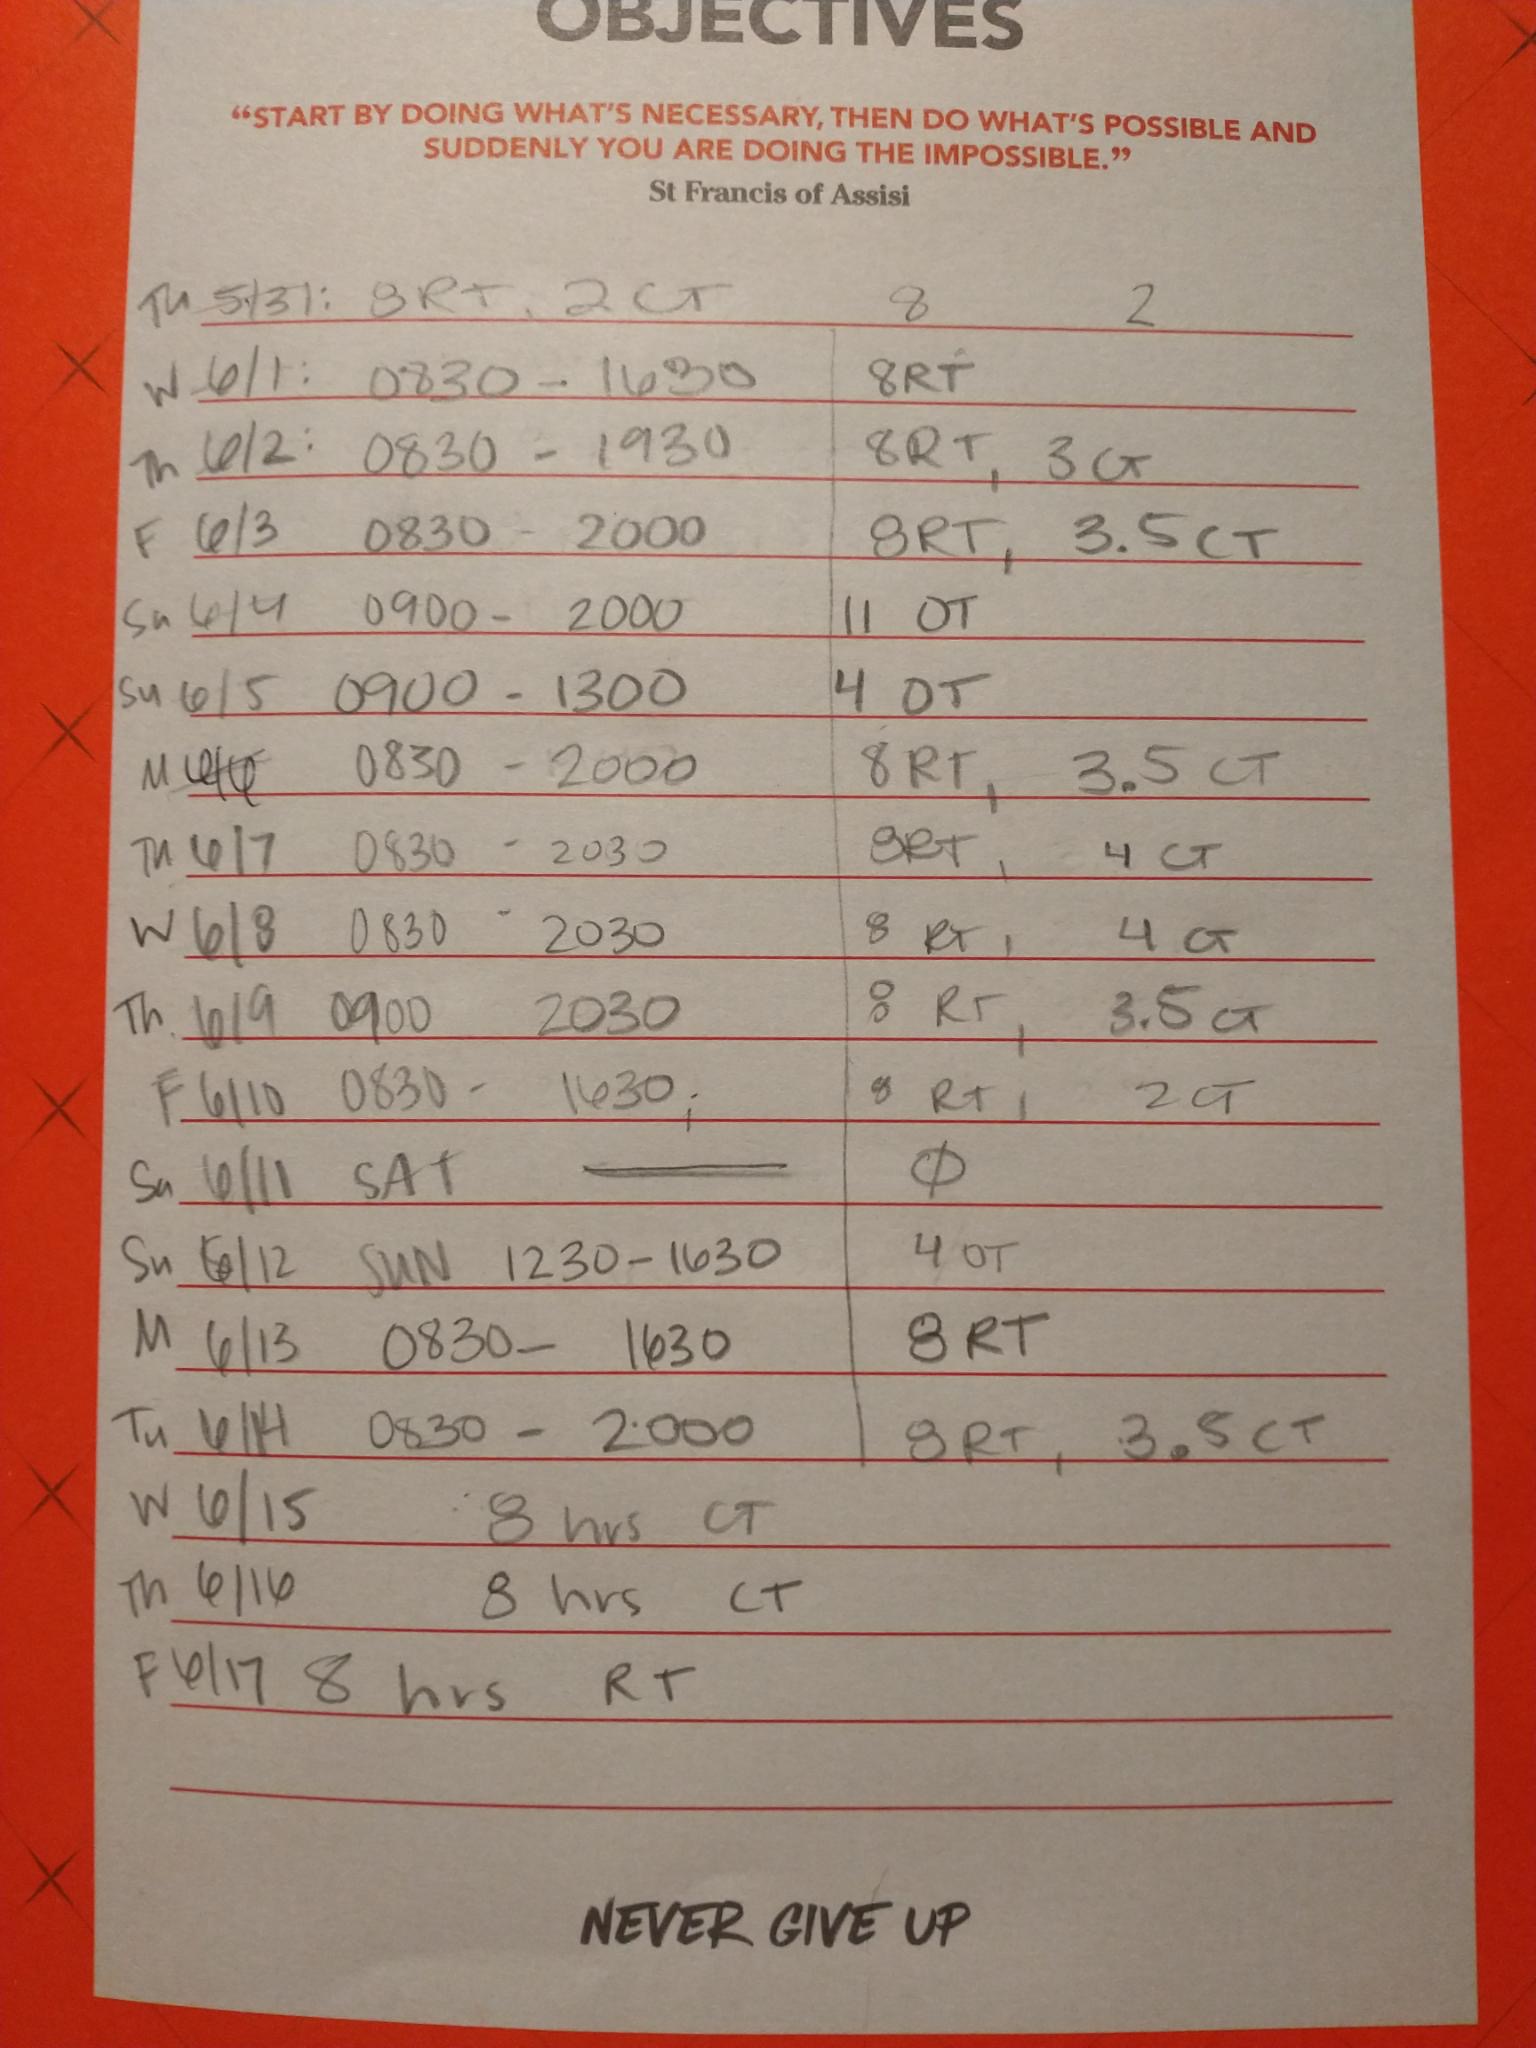 OBJECTIVES
“START BY DOING WHAT’S NECESSARY, THEN DO WHAT’S POSSIBLE AND
SUDDENLY YOU ARE DOING THE IMPOSSIBLE.”
St Francis of Assisi
Tu 5/31: 8RT, 2 CT 8 2
W 6/1: 0830 - 1630 8RT
Th 6/2: 0830 - 1930 8RT, 3 CT
F 6/3 0830 - 2000 8RT, 3.5 CT
Sa 6/4 0900 - 2000 11 OT
Su 6/5 0900 - 1300 4 OT
M 6/6 0830 - 2000 8 RT, 3.5 CT
Tu 6/7 0830 - 2030 8RT, 4 CT
W 6/8 0830 - 2030 8 RT, 4 CT
Th. 6/9 0900 2030 8 RT, 3.5 CT
F 6/10 0830 - 1630; 8 RT, 2 CT
Sa 6/11 SAT — Ø
Su 6/12 SUN 1230 - 1630 4 OT
M 6/13 0830 - 1630 8 RT
Tu 6/14 0830 - 2000 8 RT, 3.5 CT
W 6/15 8 hrs CT
Th 6/16 8 hrs CT
F 6/17 8 hrs RT
NEVER GIVE UP